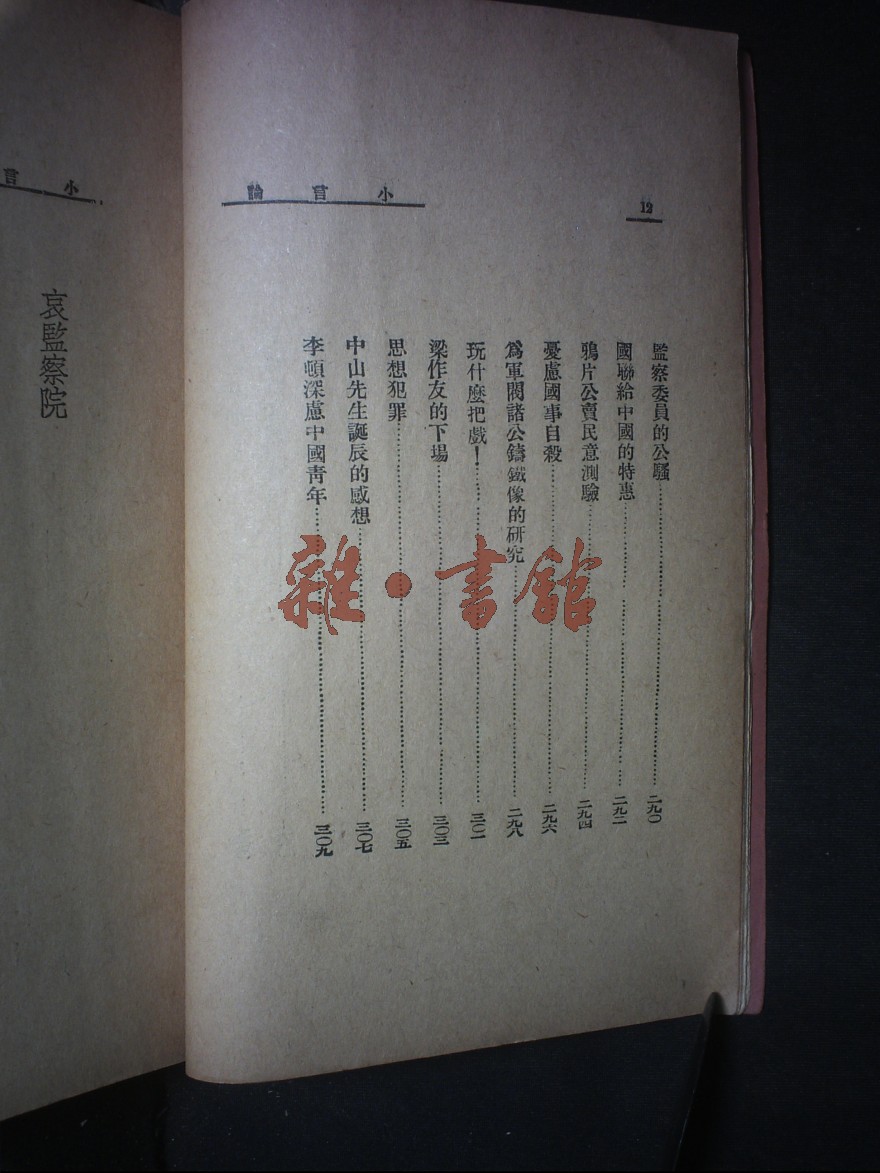 小言論
12
監察委員的公騷……二九〇
國聯給中國的特惠……二九二
鴉片公賣民意測驗……二九四
憂慮國事自殺……二九六
爲軍閥諸公鑄鐵像的研究……二九八
玩什麼把戲！……三〇一
梁作友的下場……三〇三
思想犯罪……三〇五
中山先生誕辰的感想……三〇七
李頓深慮中國靑年……三〇九
雜·書館
小言
哀監察院